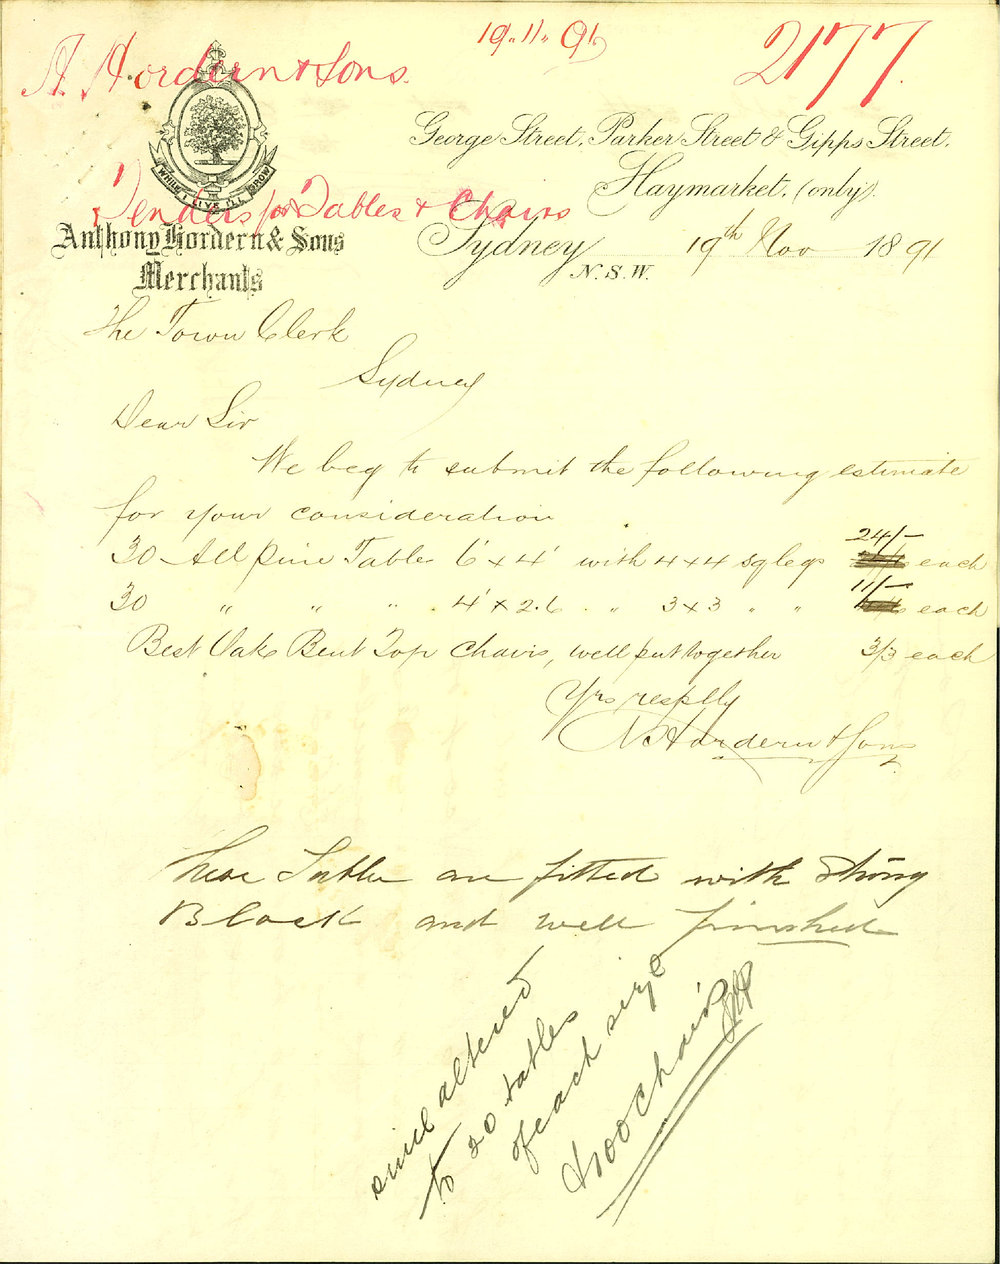 A. Hordern & Sons.
19.11.91
2177.
WHILE I LIVE I'LL GROW
George Street, Parker Street & Gipps Street,
Haymarket, (only).
Tenders for Tables & Chairs
Anthony Hordern & Sons
Merchants
Sydney 19th Nov 1891
N.S.W.
The Town Clerk
Sydney
Dear Sir
We beg to submit the following estimate
for your consideration
24/-
30 All pine Tables 6' x 4' with 4 x 4 sq legs each
11/-
30 " " " 4' x 2.6 " " 3 x 3 " " each
Best Oak Bent Top Chairs, well put together 3/3 each
Yrs resplly
A Hordern & Sons
These Tables are fitted with strong
Block and well finished
since altered
to 20 tables
of each size
& 100 chairs